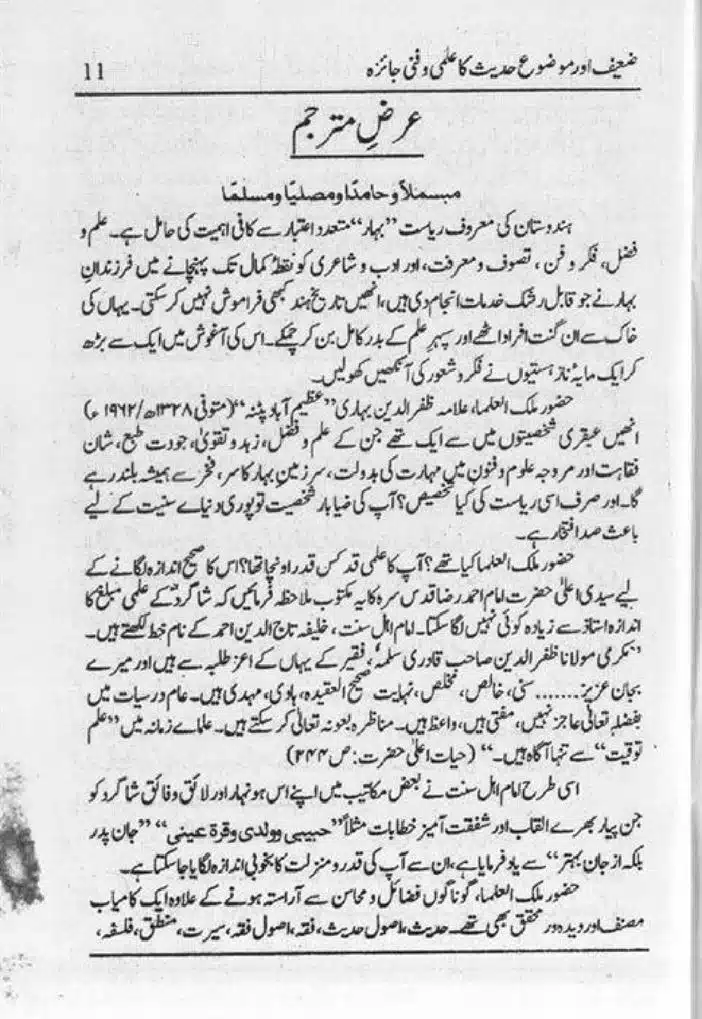 ضعیف اور موضوع حدیث کا علمی و فنی جائزہ 11
عرضِ مترجم
مبسملاً و حامدًا و مصلیًا و مسلمًا
ہندوستان کی معروف ریاست ”بہار“ متعدد اعتبار سے کافی اہمیت کی حامل ہے۔ علم و
فضل، فکر و فن، تصوف و معرفت، اور ادب و شاعری کو نقطۂ کمال تک پہنچانے میں فرزندانِ
بہار نے جو قابل رشک خدمات انجام دی ہیں، انھیں تاریخ ہند کبھی فراموش نہیں کر سکتی۔ یہاں کی
خاک سے ان گنت افراد اٹھے اور سپہرِ علم کے بدر کامل بن کر چمکے۔ اس کی آغوش میں ایک سے بڑھ
کر ایک مایہ ناز ہستیوں نے فکر و شعور کی آنکھیں کھولیں۔
حضور ملک العلما، علامہ ظفر الدین بہاری ”عظیم آباد پٹنہ“ (متوفی ۱۳۲۸ھ/۱۹۶۲ء)
انھیں عبقری شخصیتوں میں سے ایک تھے جن کے علم و فضل، زہد و تقویٰ، جودت طبع، شان
فقاہت اور مروجہ علوم و فنون میں مہارت کی بدولت، سرزمینِ بہار کا سر، فخر سے ہمیشہ بلند رہے
گا۔ اور صرف اسی ریاست کی کیا تخصیص؟ آپ کی ضیا بار شخصیت تو پوری دنیاے سنیت کے لیے
باعث صد افتخار ہے۔
حضور ملک العلما کیا تھے؟ آپ کا علمی قد کس قدر اونچا تھا؟ اس کا صحیح اندازہ لگانے کے
لیے سیدی اعلیٰ حضرت امام احمد رضا قدس سرہ کا یہ مکتوب ملاحظہ فرمائیں کہ شاگرد کے علمی مبلغ کا
اندازہ استاذ سے زیادہ کوئی نہیں لگا سکتا۔ امام اہل سنت، خلیفہ تاج الدین احمد کے نام خط لکھتے ہیں۔
”مکرمی مولانا ظفر الدین صاحب قادری سلمہ، فقیر کے یہاں کے اعز طلبہ سے ہیں اور میرے
بجان عزیز....... سنی، خالص، مخلص، نہایت صحیح العقیدہ، ہادی، مہدی ہیں۔ عام درسیات میں
بفضلہٖ تعالیٰ عاجز نہیں، مفتی ہیں، واعظ ہیں۔ مناظرہ بعونہ تعالیٰ کر سکتے ہیں۔ علماے زمانہ میں ”علم
توقیت“ سے تنہا آگاہ ہیں۔“ (حیات اعلیٰ حضرت: ص ۲۴۴)
اسی طرح امام اہل سنت نے بعض مکاتیب میں اپنے اس ہونہار اور لائق و فائق شاگرد کو
جن پیار بھرے القاب اور شفقت آمیز خطابات مثلاً ”حبیبی وولدی وقرة عینی“ ”جان پدر
بلکہ از جان بہتر“ سے یاد فرمایا ہے، ان سے آپ کی قدر و منزلت کا بخوبی اندازہ لگایا جا سکتا ہے۔
حضور ملک العلما، گوناگوں فضائل و محاسن سے آراستہ ہونے کے علاوہ ایک کامیاب
مصنف اور دیدہ ور محقق بھی تھے۔ حدیث، اصول حدیث، فقہ، اصول فقہ، سیرت، منطق، فلسفہ،